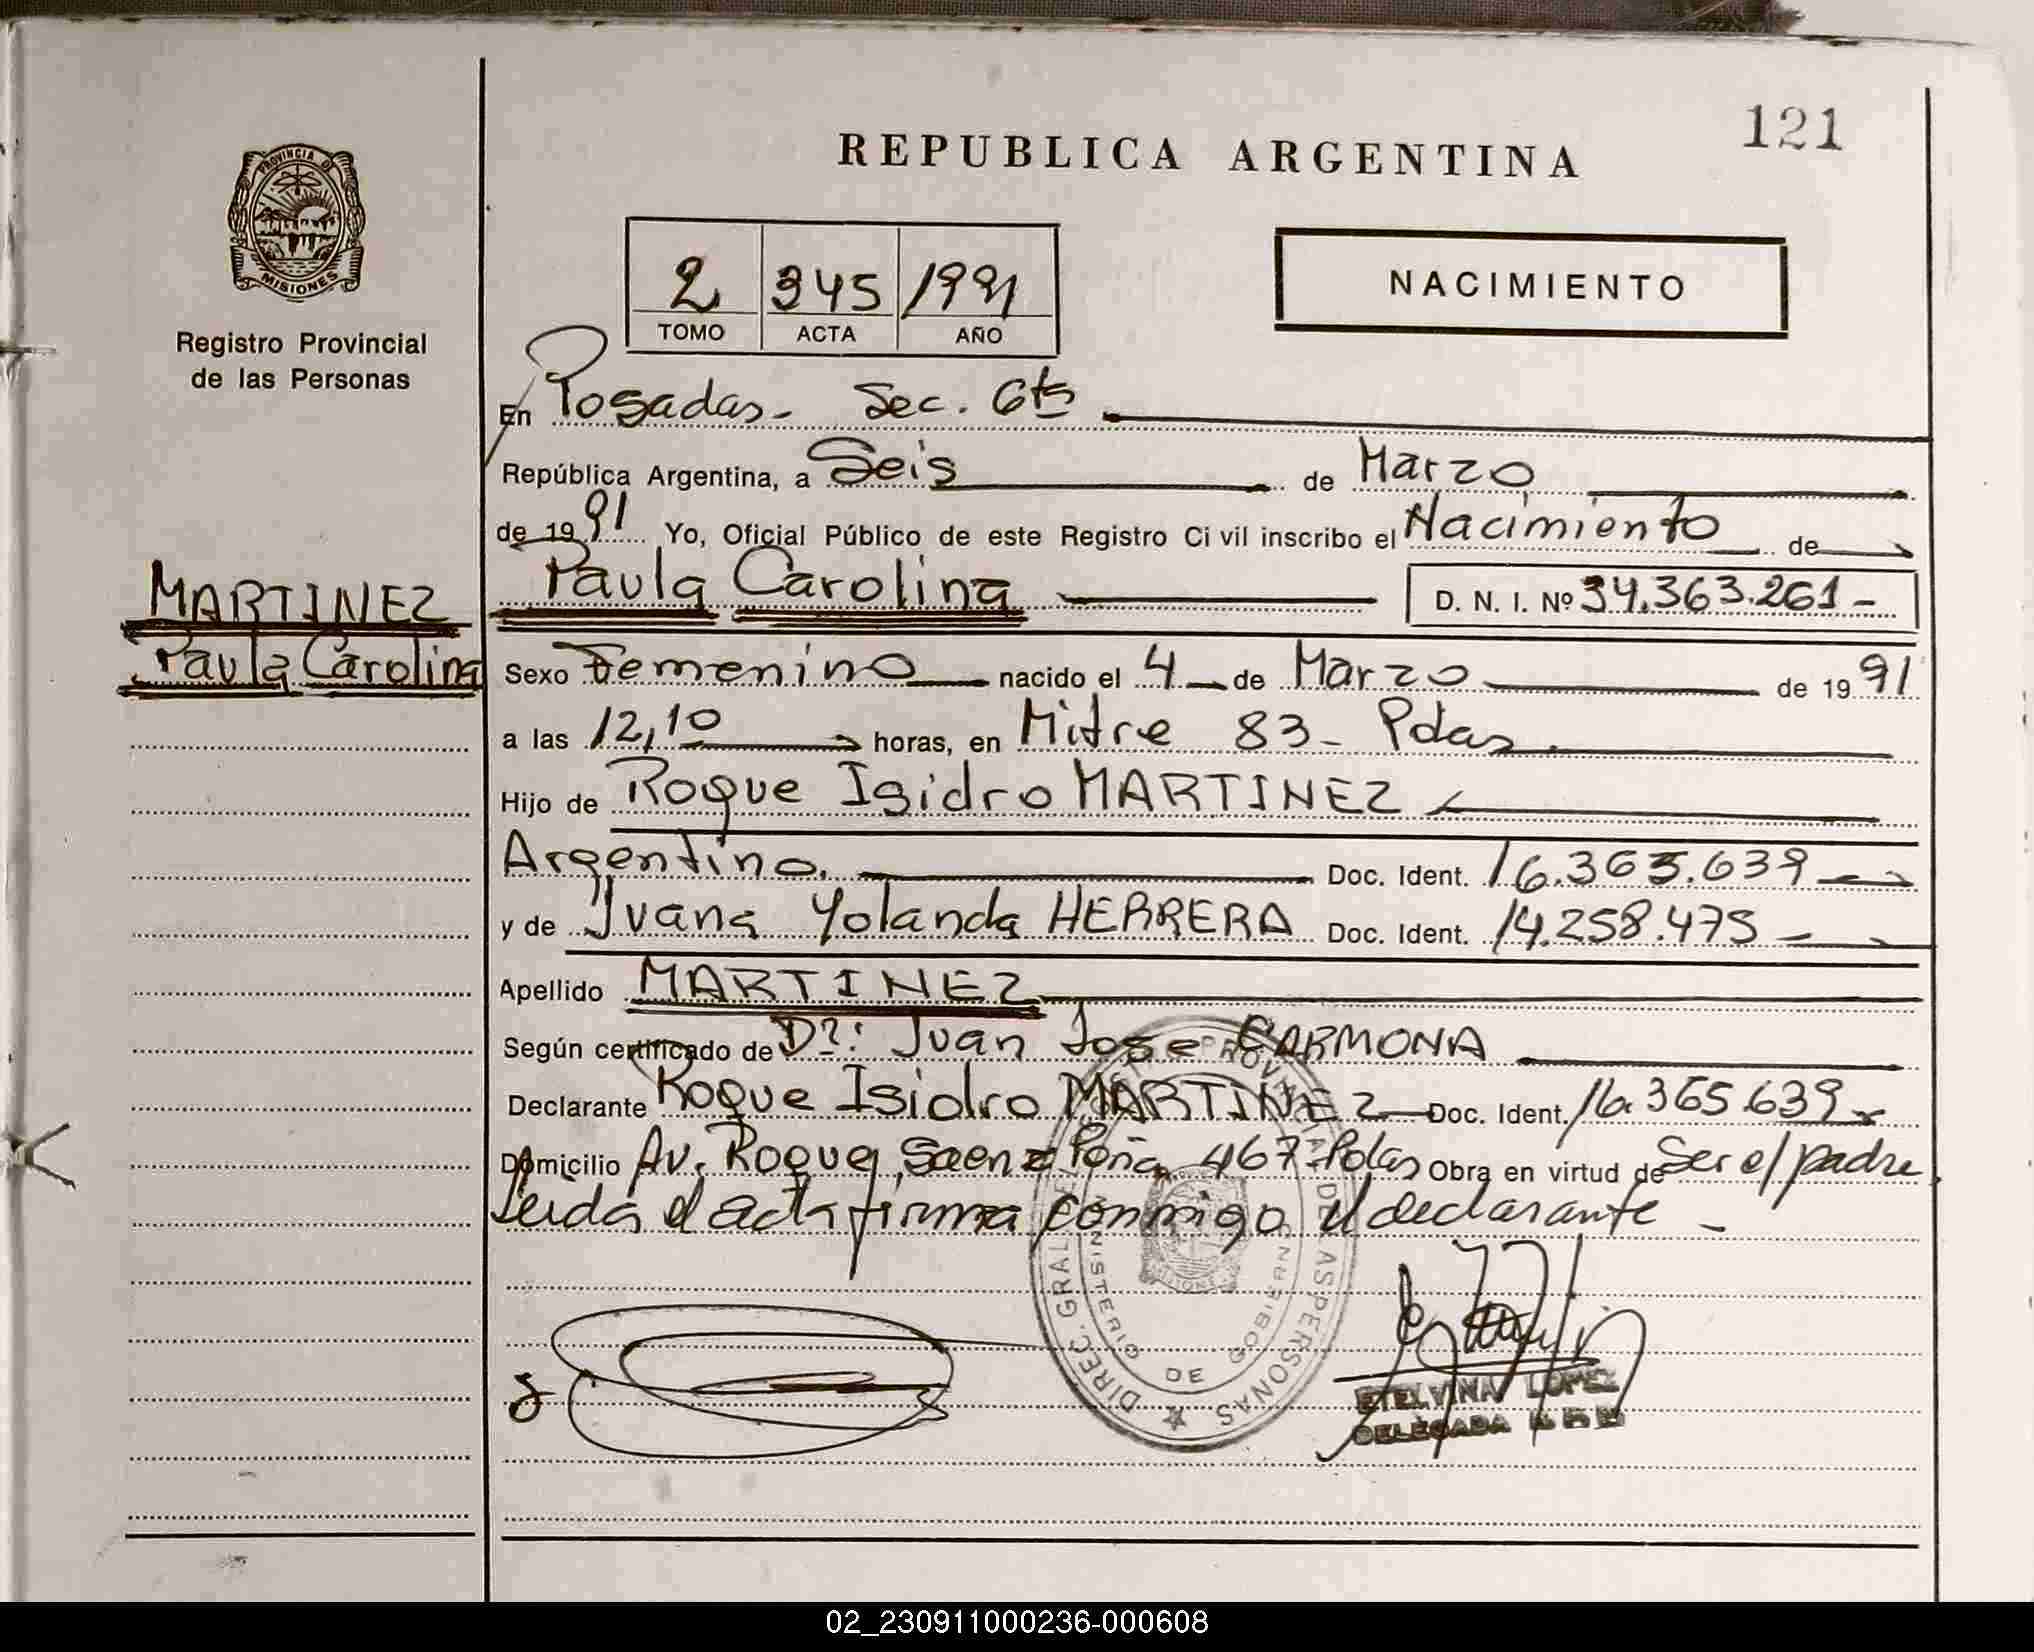 121
REPUBLICA ARGENTINA
PROVINCIA DE
MISIONES
Registro Provincial
de las Personas
2 345 1991
TOMO ACTA AÑO
NACIMIENTO
En Posadas - Sec. 6ta
República Argentina, a Seis de Marzo
de 1991 Yo, Oficial Público de este Registro Civil inscribo el Nacimiento de
MARTINEZ
Paula Carolina
Paula Carolina D. N. I. Nº 34.363.261 -
Sexo Femenino nacido el 4 de Marzo de 1991
a las 12,10 horas, en Mitre 83 - Pdas.
Hijo de Roque Isidro MARTINEZ
Argentino. Doc. Ident. 16.365.639
y de Juana Yolanda HERRERA Doc. Ident. 14.258.475 -
Apellido MARTINEZ
Según certificado de Dr: Juan Jose CARMONA
Declarante Roque Isidro MARTINEZ Doc. Ident. 16.365.639
Domicilio Av. Roque Saenz Peña 467 - Pdas Obra en virtud de Ser el padre
Leida el acta firma conmigo el declarante -
DIREC. GRAL. DEL REG. PROVINCIAL DE LAS PERSONAS
MINISTERIO DE GOBIERNO
MISIONES
ETELVINA LOPEZ
DELEGADA
02_230911000236-000608